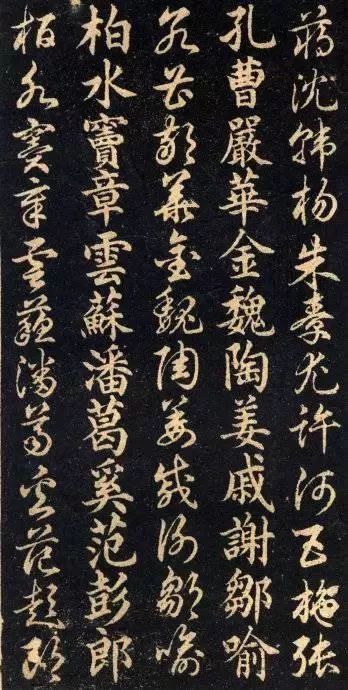 蔣沈韓楊朱秦尤許何呂施張
孔曹嚴華金魏陶姜戚謝鄒喻
孔曹嚴華金魏陶姜戚謝鄒喻
柏水竇章雲蘇潘葛奚范彭郎
柏水竇章雲蘇潘葛奚范彭郎